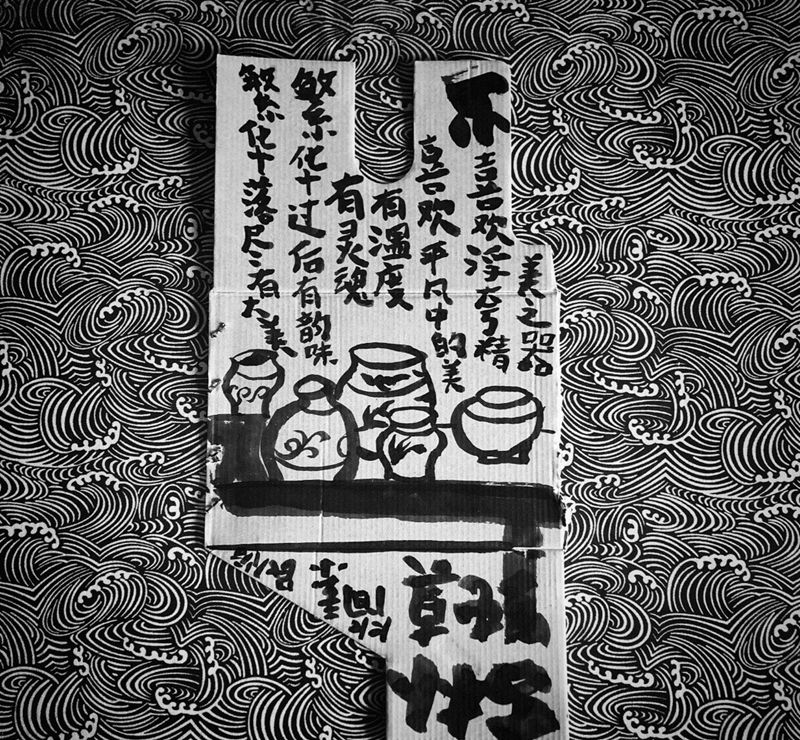 美之器
不喜欢浮夸精
喜欢平凡中的美
有温度
有灵魂
繁华过后有韵味
繁华落尽有大美